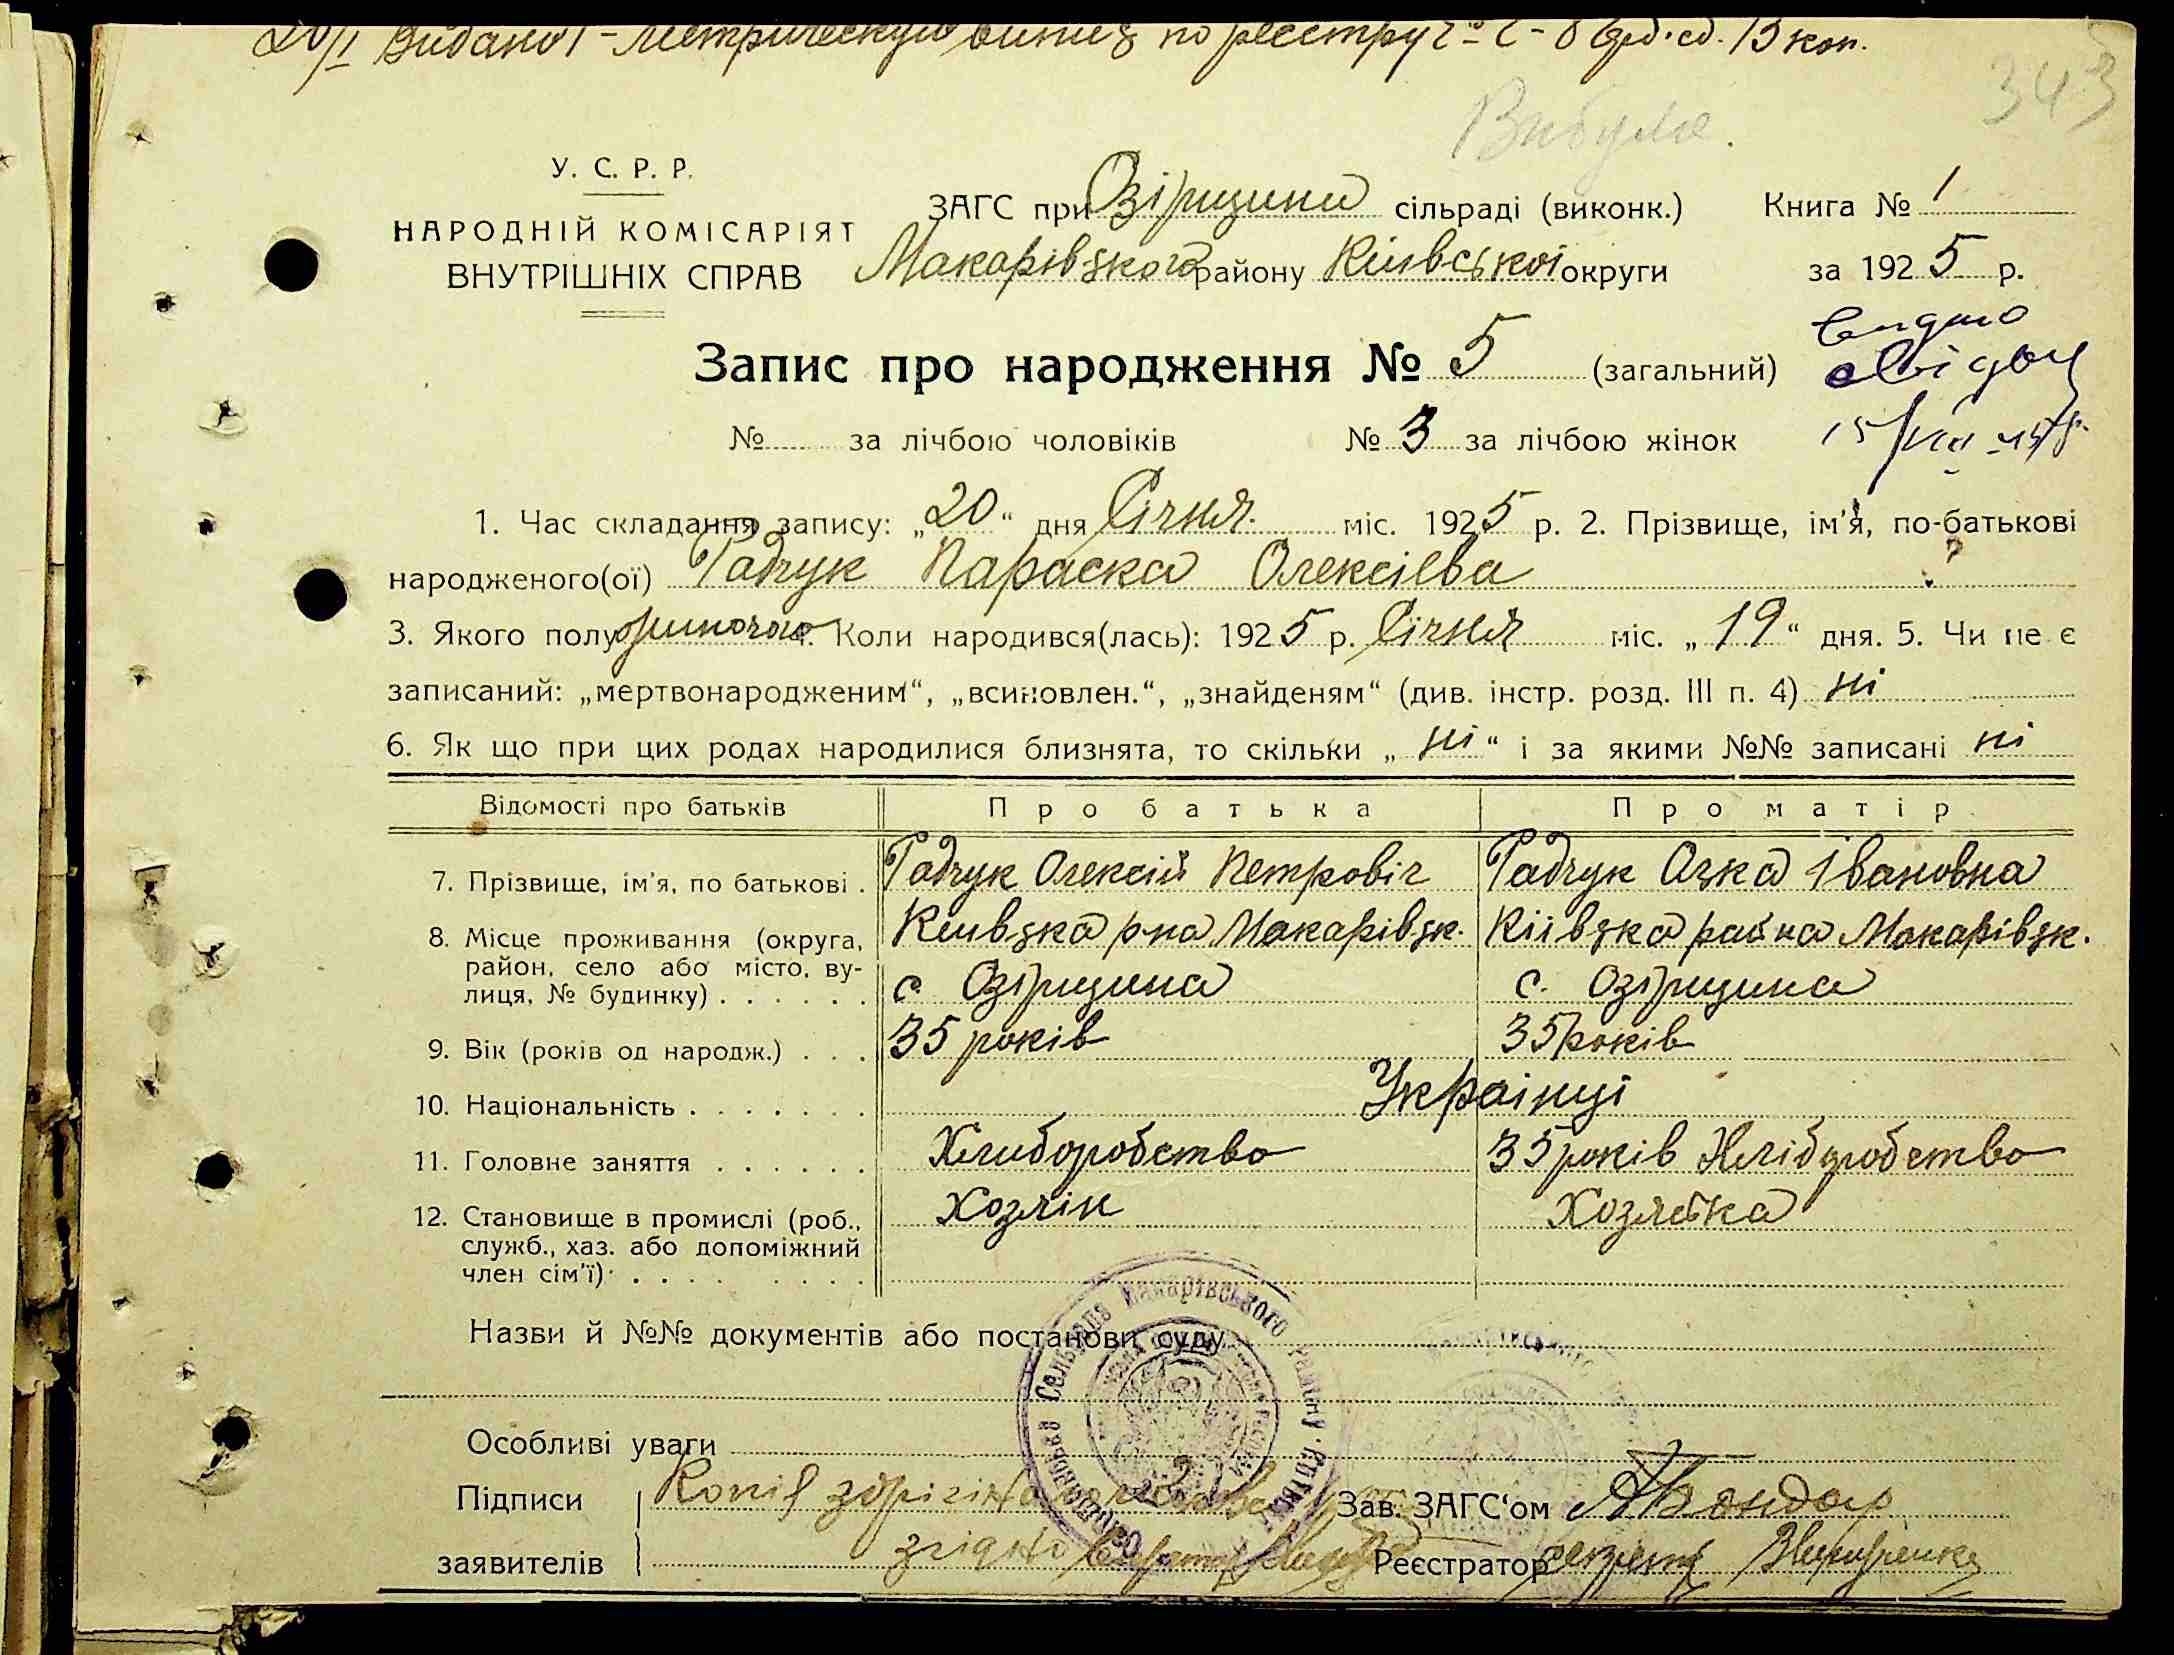 Видано 1 - метрическую випис по реєстру
343
Вибула.
У. С. Р. Р.
НАРОДНІЙ КОМІСАРІЯТ
ВНУТРІШНІХ СПРАВ
ЗАГС при Озірщини сільраді (виконк.) Книга № 1
Макарівзкого району Київської округи за 1925 р.
Запис про народження № 5 (загальний)
видно
свідоц
№ за лічбою чоловіків № 3 за лічбою жінок
1. Час складання запису: „20“ дня Січня. міс. 1925 р. 2. Прізвище, ім'я, по-батькові
народженого(ої) Радчук Параска Олексієва
3. Якого полу жиночого 4. Коли народився(лась): 1925 р. Січня міс. „19“ дня. 5. Чи не є
записаний: „мертвонародженим“, „всиновлен.“, „знайденям“ (див. інстр. розд. III п. 4) ні
6. Як що при цих родах народилися близнята, то скільки „ні“ і за якими №№ записані ні
Відомості про батьків Про батька Про матір
7. Прізвище, ім'я, по батькові . Радчук Олексій Петровіч Радчук Івановна
8. Місце проживання (округа, район, село або місто, ву-лиця, № будинку) . . . . . . Киівзка р-на Макарівзк. Кіівзка района Макарівзк.
с Озірщина с. Озірщина
9. Вік (років од народж.) . . . 35 років 35 років
10. Національність . . . . . . . Украінці
11. Головне заняття . . . . . . Хлиборобство 35 років Хліборобство
12. Становище в промислі (роб., служб., хаз. або допоміжний член сім'ї) . . . . . . . . . Хозяїн Хозяйка
Назви й №№ документів або постанови суду
Особливі уваги
Підписи Копія з Зав. ЗАГС'ом Бондар
заявителів згідно Реєстратор
Сельради Макарівського району